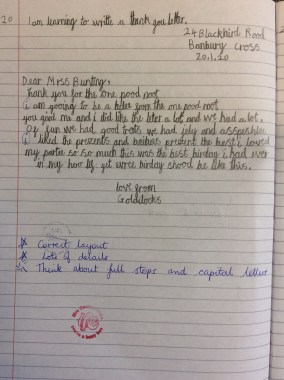 20 I am learning to write a thank you letter.
24 Blackbird Road
Banbury Cross
20.1.20
Dear Mrss Bunting,
thank you for the one pood noot
i am gooing to be a biter from the one pood noot
you gad me and i did like the liter a lot and we had a lot
Of fun we had good trats we had jely and
i liked the presents and present the best i loved
my partie so so much this was the best birday i had ever
in my how life. yet evre birday shood be like this.
love from
Goldilocks
Correct layout
Lots of details
Think about full stops and capital letters